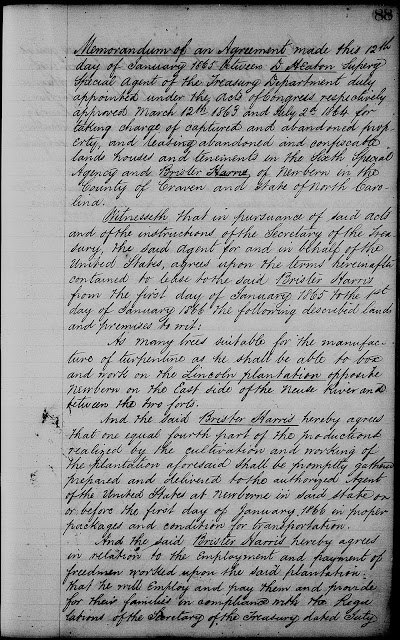 88
Memorandum of an Agreement made this 12th
day of January 1865 between D Heaton Superg
Special Agent of the Treasury Department duly
appointed under the Acts of Congress respectively
approved March 12th 1863 and July 2d 1864 for
taking charge of captured and abandoned prop-
erty, and leasing abandoned and confiscable
lands houses and tenements in the Sixth Special
Agency and Brister Harris, of Newbern in the
County of Craven and State of North Caro-
lina.
Witnesseth that in pursuance of said Acts
and of the instructions of the Secretary of the Trea-
sury, the said Agent for and in behalf of the
United States, agrees upon the terms hereinafter
contained to lease to the said Brister Harris
from the first day of January 1865 to the 1st
day of January 1866 the following described lands
and premises to wit:
As many trees suitable for the manufac-
ture of turpentine as he shall be able to box
and work on the Lincoln plantation opposite
Newbern on the East side of the Neuse River and
between the two forts.
And the said Brister Harris hereby agrees
that one equal fourth part of the productions
realized by the cultivation and working of
the plantation aforesaid shall be promptly gathered
prepared and delivered to the authorized Agent
of the United States at Newberne in said state on
or before the first day of January 1866 in proper
packages and condition for transportation.
And the said Brister Harris hereby agrees
in relation to the Employment and payment of
freedmen worked upon the said plantation
that he will Employ and pay them and provide
for their families in compliance with the Regu-
lations of the Secretary of the Treasury dated July